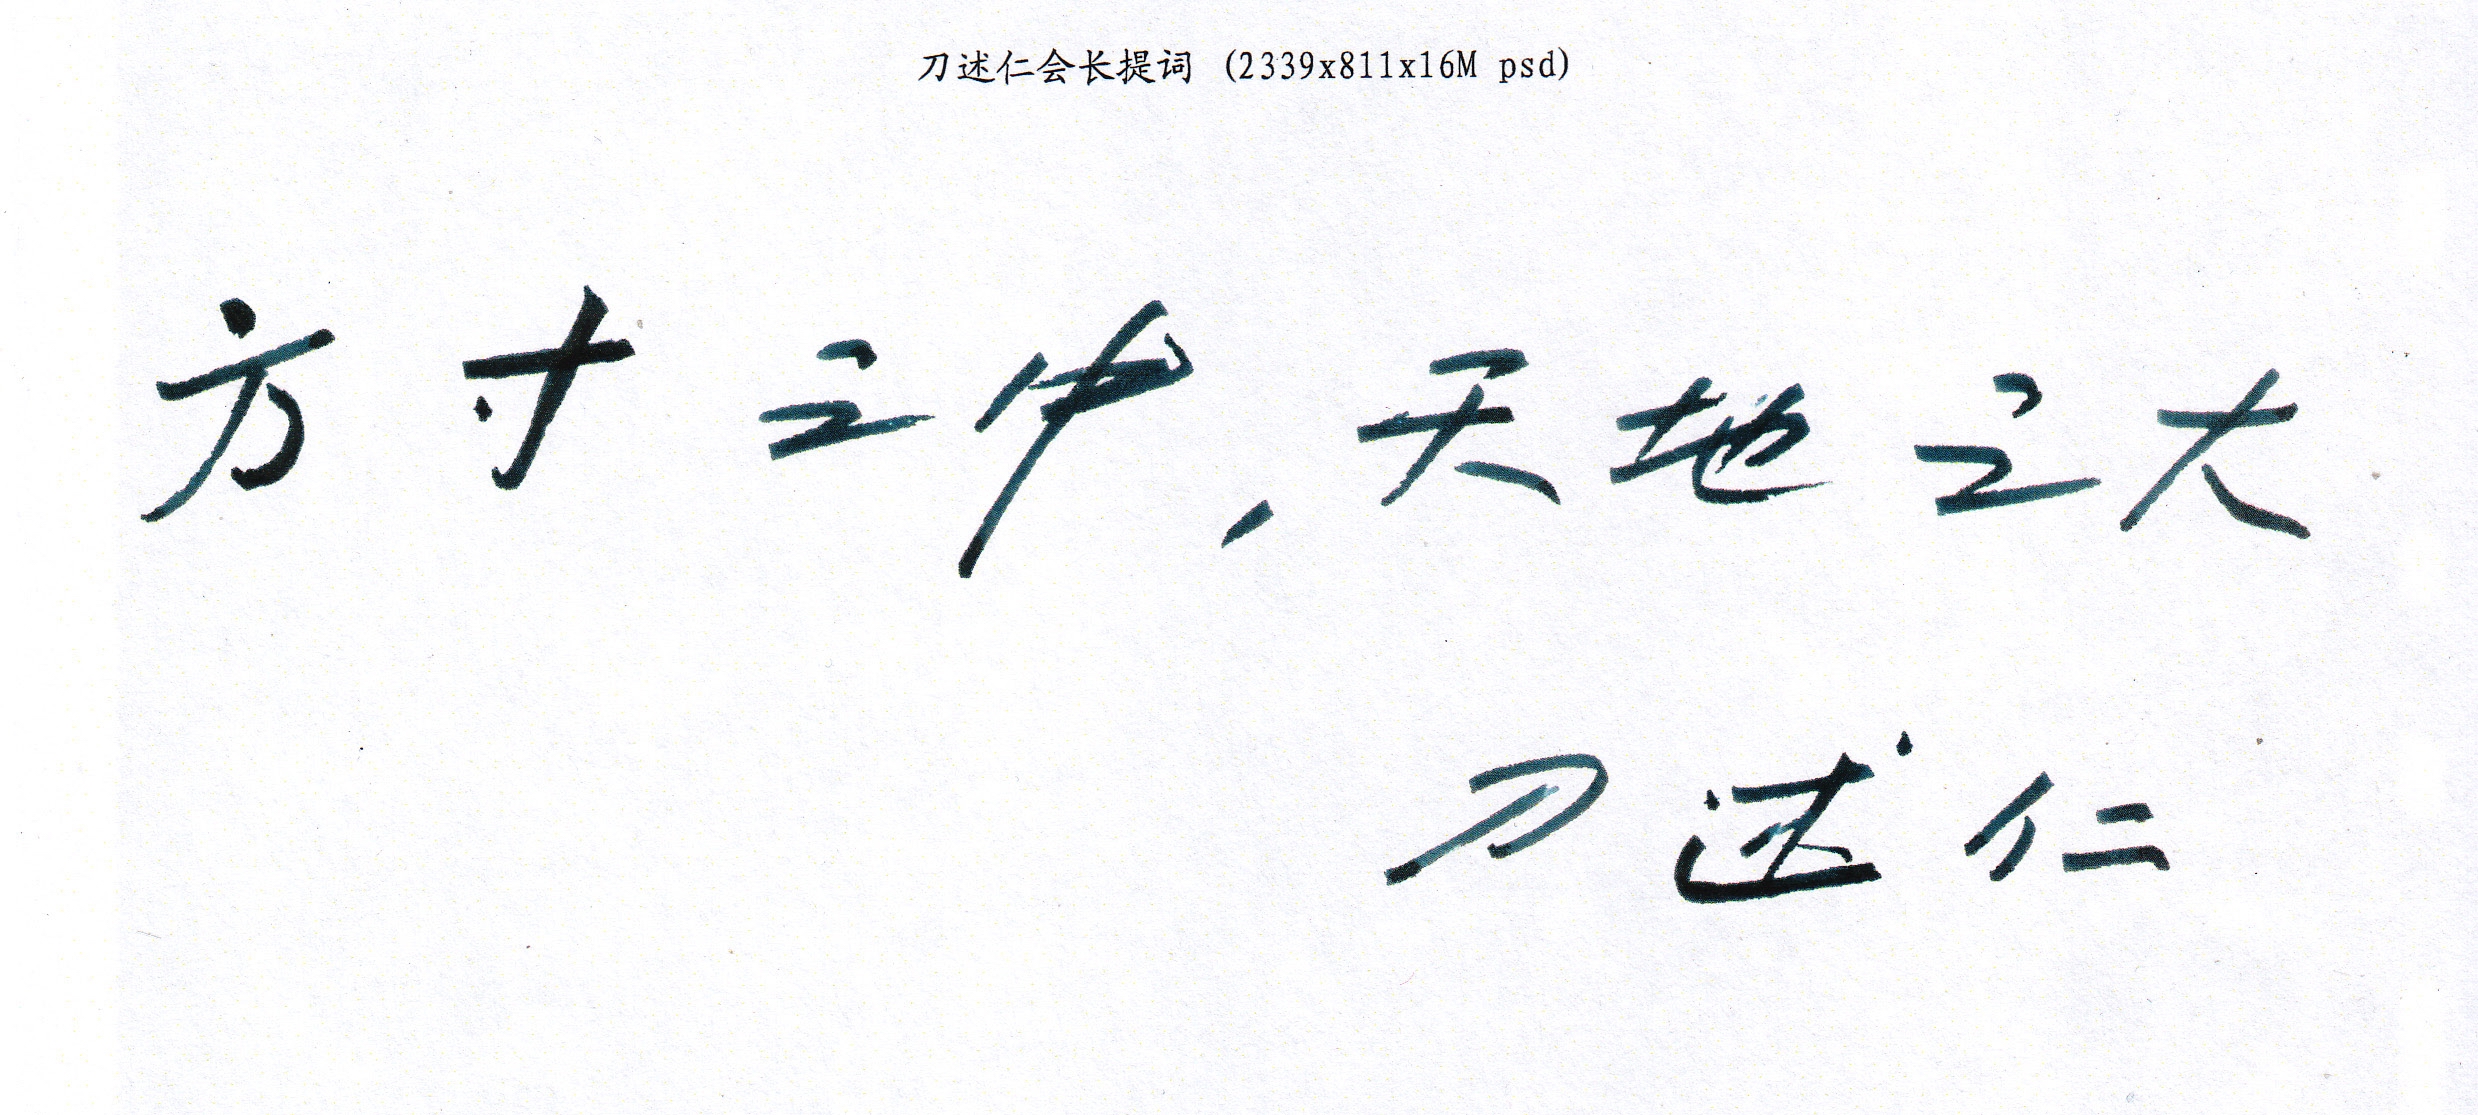 刀述仁会长提词 (2339x811x16M psd)
方寸之中，天地之大
刀述仁